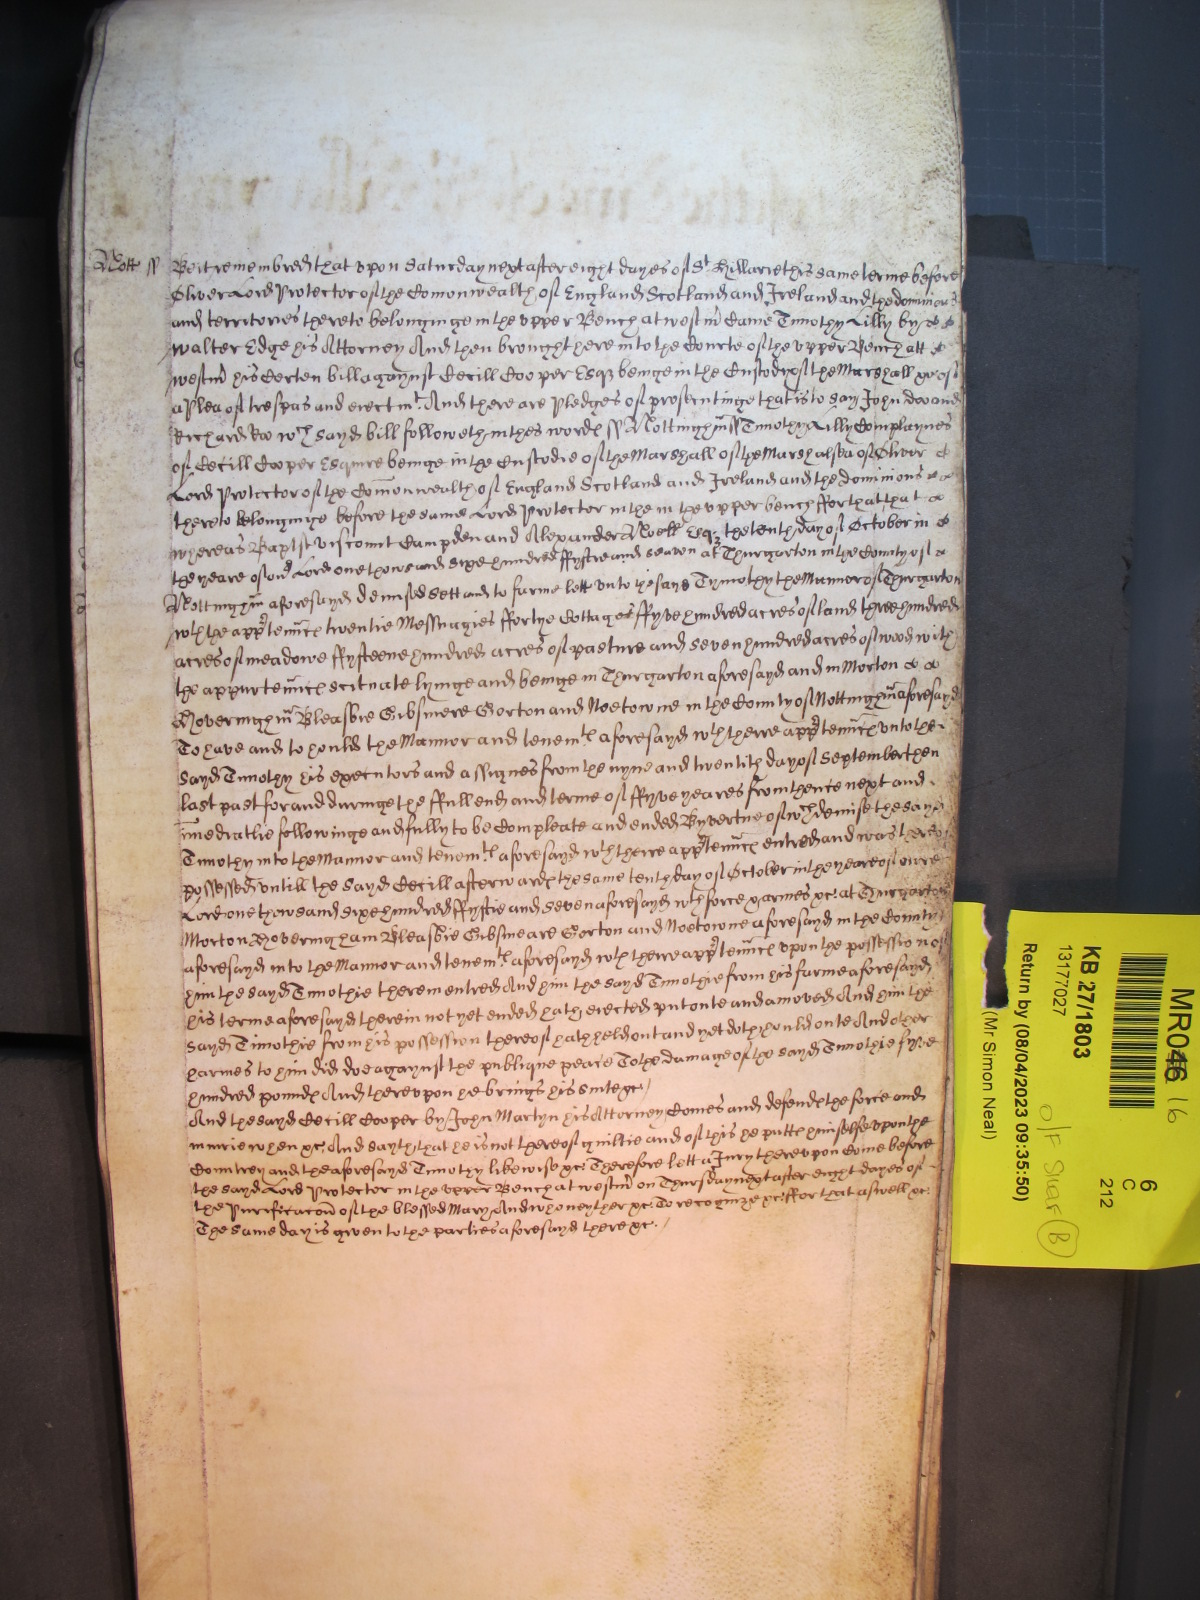 Nott ss Be it remembred that upon Saturday next after eight dayes of St. Hillarie this same terme before
Oliver Lord Protector of the Comonwealth of England Scotland and Ireland and the dominions
and territories thereto belonginge in the upper Bench at westmr Came Timothy Lilly by
Walter Edge his Attorney And then brought here into the Courte of the upper Bench att
westmr his Certen bill agaynst Cecill Cooper Esqz beinge in the Custody of the Marshall &c of
a Plea of trespas and eiectmt. And there are Pledges of prosecutinge that is to say John doo and
Richard Roo wch sayd bill followeth in thes words ss Nottinghm ss Timothy Lilly Complaynes
of Cecill Cooper Esquire beinge in the Custodie of the Marshall of the Marshalsea of Oliver
Lord Protector of the Comonwealth of England Scotland and Ireland and the dominions
thereto belonginge before the same Lord Protector in the in the upper bench ffor that that
whereas Baptist viscomt Campden and Alexander Noell Esqz the tenth day of October in
the yeare of our Lord one thowsand sixe hundred ffyftie and seaven at Thurgarton in the County of
Nottinghm aforesayd demised sett and to farme lett unto the sayd Tymothy the Mannor of Thurgarton
wth the apprtennces twentie Messuagies ffortye Cottages ffyve hundred acres of land three hundred
acres of meadowe ffyfteene hundred acres of pasture and seven hundred acres of wood with
the appurtennces scituate lyinge and beinge in Thurgarton aforesayd and in Morton
Hoveringhm Bleasbie Gibsmere Gorton and Noetowne in the County of Nottinghm aforesayd
To have and to hould the Mannor and tenemts aforesayd wth there apprtennces unto the
sayd Timothy his executors and assignes from the nyne and twentith day of September then
last past for and duringe the ffull end and terme of ffyve yeares from thence next and
imediatlie followinge and fully to be Compleate and ended By vertue of wch demise the sayd
Timothy into the Mannor and tenemts aforesayd wth there apprtennces entred and was thereof
possessed untill the sayd Cecill afterwards the same tenth day of October in the yeare of oure
Lord one thowsand sixe hundred ffyftie and seven aforesayd wth force & armes &c. at Thurgarton
Morton Hoveringham Bleasbie Gibsmeare Gorton and Noetowne aforesayd in the County
aforesayd into the Mannor and tenemts aforesayd wth there apprtennces upon the possession of
him the sayd Timothie therein entred And him the sayd Timothie from his farme aforesayd
his terme aforesayd therein not yet ended hath eiected put oute and amoved And him the
sayd Timothie from his possession thereof hath held out and yet doth hould oute And other
harmes to him did doe agaynst the publique peace To the damage of the sayd Timothie fyve
hundred pounds And thereupon he brings his suite &c /
And the sayd Cecill Cooper by John Martyn his Attorney Comes and defends the force and
iniurie when &c. And sayth that he is not thereof guiltie and of this he putts himselfe upon the
Countrey and the aforesayd Timothy likewise &c. Therefore lett a Jury thereupon Come before
the sayd Lord Protector in the upper Bench at westmr on Thursday next after eight dayes of
the Purificacon of the blessed Mary And who neyther &c. To recognize &c. ffor that aswell &c.
The same day is given to the parties aforesayd there &c. /
MR046 16
6
C
212
KB 27/1803
13177027
Return by (08/04/2023 09:35:50)
(Mr Simon Neal)
O/F Staff B